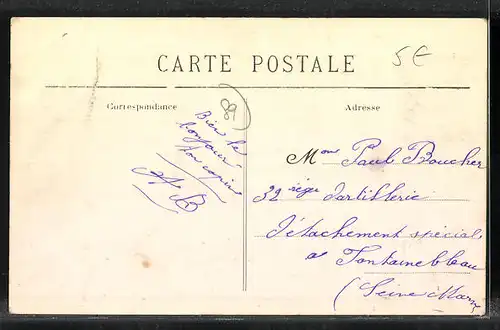 5€
CARTE POSTALE
Correspondance
Adresse
Bien le
bonjour
ton copain
A B
Mon Paul Boucher
32 régt d'artillerie
Détachement spécial
à Fontainebleau
(Seine Marne